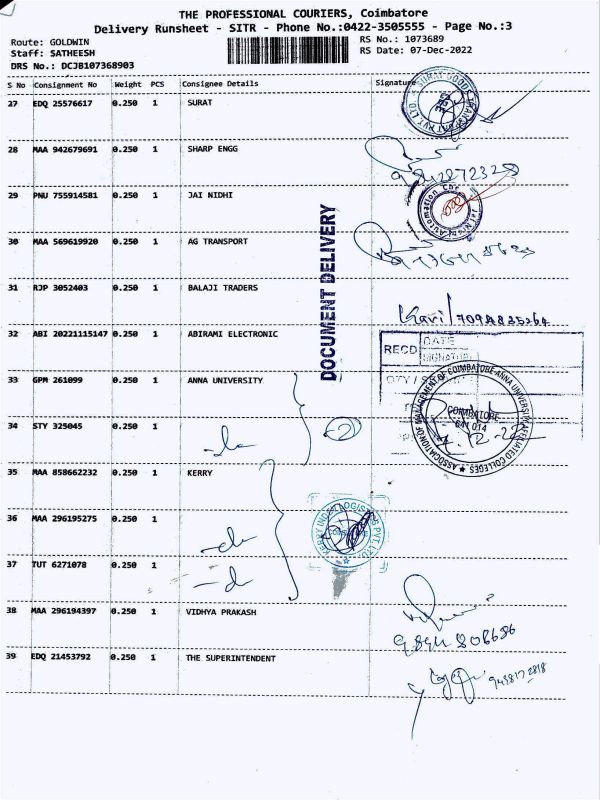 THE PROFESSIONAL COURIERS, Coimbatore
Delivery Runsheet - SITR - Phone No.:0422-3505555 - Page No.:3
Route: GOLDWIN
RS No.: 1073689
Staff: SATHEESH
RS Date: 07-Dec-2022
DRS No.: DCJB107368903
S No Consignment No Weight PCS Consignee Details Signature
27 EDQ 25576617 0.250 1 SURAT
28 MAA 942679691 0.250 1 SHARP ENGG
29 PNU 755914581 0.250 1 JAI NIDHI
30 MAA 569619920 0.250 1 AG TRANSPORT
31 RJP 3052403 0.250 1 BALAJI TRADERS
32 ABI 20221115147 0.250 1 ABIRAMI ELECTRONIC
33 GPM 261099 0.250 1 ANNA UNIVERSITY
34 STY 325045 0.250 1
35 MAA 858662232 0.250 1 KERRY
36 MAA 296195275 0.250 1
37 TUT 6271078 0.250 1
38 MAA 296194397 0.250 1 VIDHYA PRAKASH
39 EDQ 21453792 0.250 1 THE SUPERINTENDENT
DOCUMENT DELIVERY
RECD DATE
SIGNATURE
ASSOCIATION OF MANAGEMENT OF COIMBATORE ANNA UNIVERSITY AFFILIATED COLLEGES
COIMBATORE
641 014
7.12.22
2
KERRY INDEV LOGISTICS PVT. LTD.